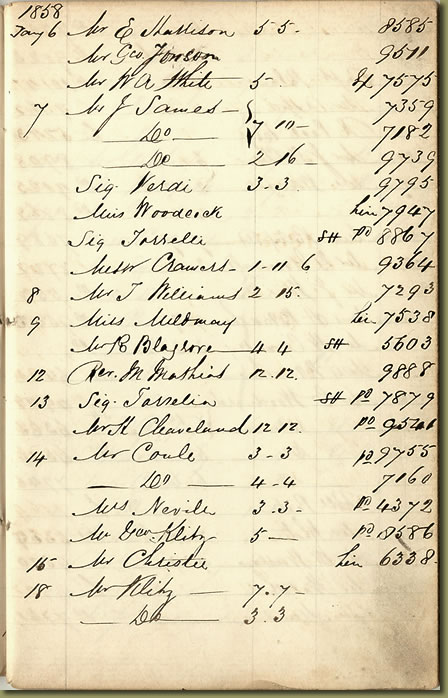 1858
Jany 6 Mr E Mattison 5 5 - 8585
Mr Geo Jonson 9511
Mr W A White 5 - Ex 7575
7 Mr J Sames - 7359
Do 7 10 - 7182
Do 2 16 - 9739
Sig. Verdi 3 - 3 9795
Miss Woodcock hire 7947
Sig Torrelli SH pd 8867
Messr Cramers - 1 - 11 6 9364
8 Mr T Williams 2 15. 7293
9 Miss Mildmay hire 7538
Mr R Blagrove 4 4 SH 5603
12 Rev. M Mathias 12.12. 9888
13 Sig. SH pd 7879
Mr H Cleaveland 12 12. pd 9541
14 Mr Coule 3 - 3 pd 9755
Do 4 - 4 7160
Mrs Nevile 3.3 - pd 4372
Mr Geo. Klitz 5 - pd 8586
15 Mr Christie hire 6338
18 Mr Klitz 7.7 -
Do 3.3